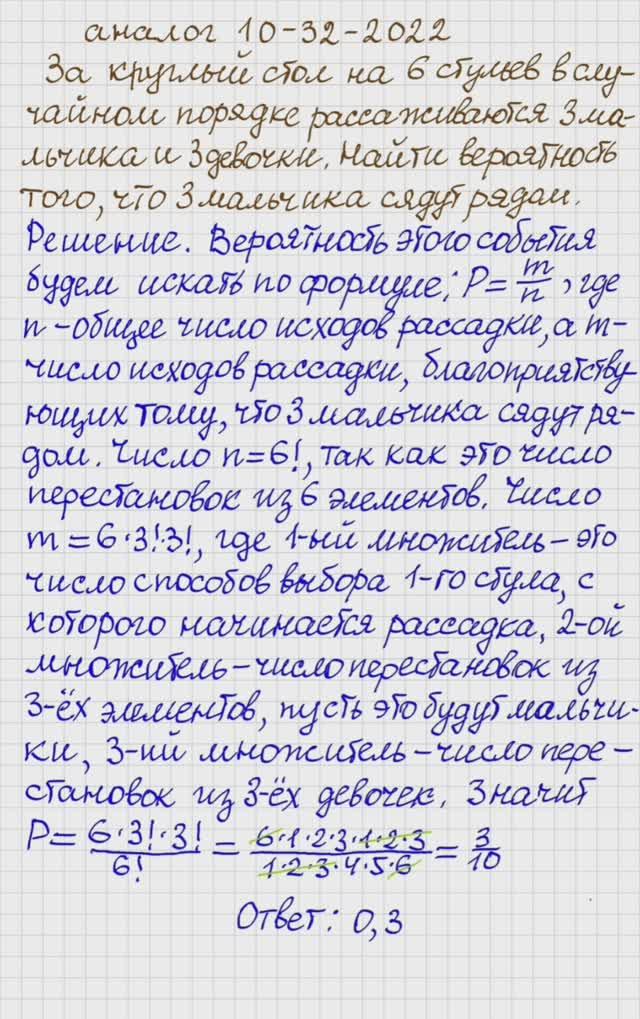 аналог 10-32-2022
За круглый стол на 6 стульев в слу-
чайном порядке рассаживаются 3 ма-
льчика и 3 девочки. Найти вероятность
того, что 3 мальчика сядут рядом.
Решение. Вероятность этого события
будем искать по формуле: P = m/n, где
n - общее число исходов рассадки, а m -
число исходов рассадки, благоприятству-
ющих тому, что 3 мальчика сядут ря-
дом. Число n = 6!, так как это число
перестановок из 6 элементов. Число
m = 6·3!·3!, где 1-ый множитель - это
число способов выбора 1-го стула, с
которого начинается рассадка, 2-ой
множитель - число перестановок из
3-ёх элементов, пусть это будут мальчи-
ки, 3-ий множитель - число пере-
становок из 3-ёх девочек. Значит
P = 6·3!·3!/6! = 6·1·2·3·1·2·3/1·2·3·4·5·6 = 3/10
Ответ: 0,3